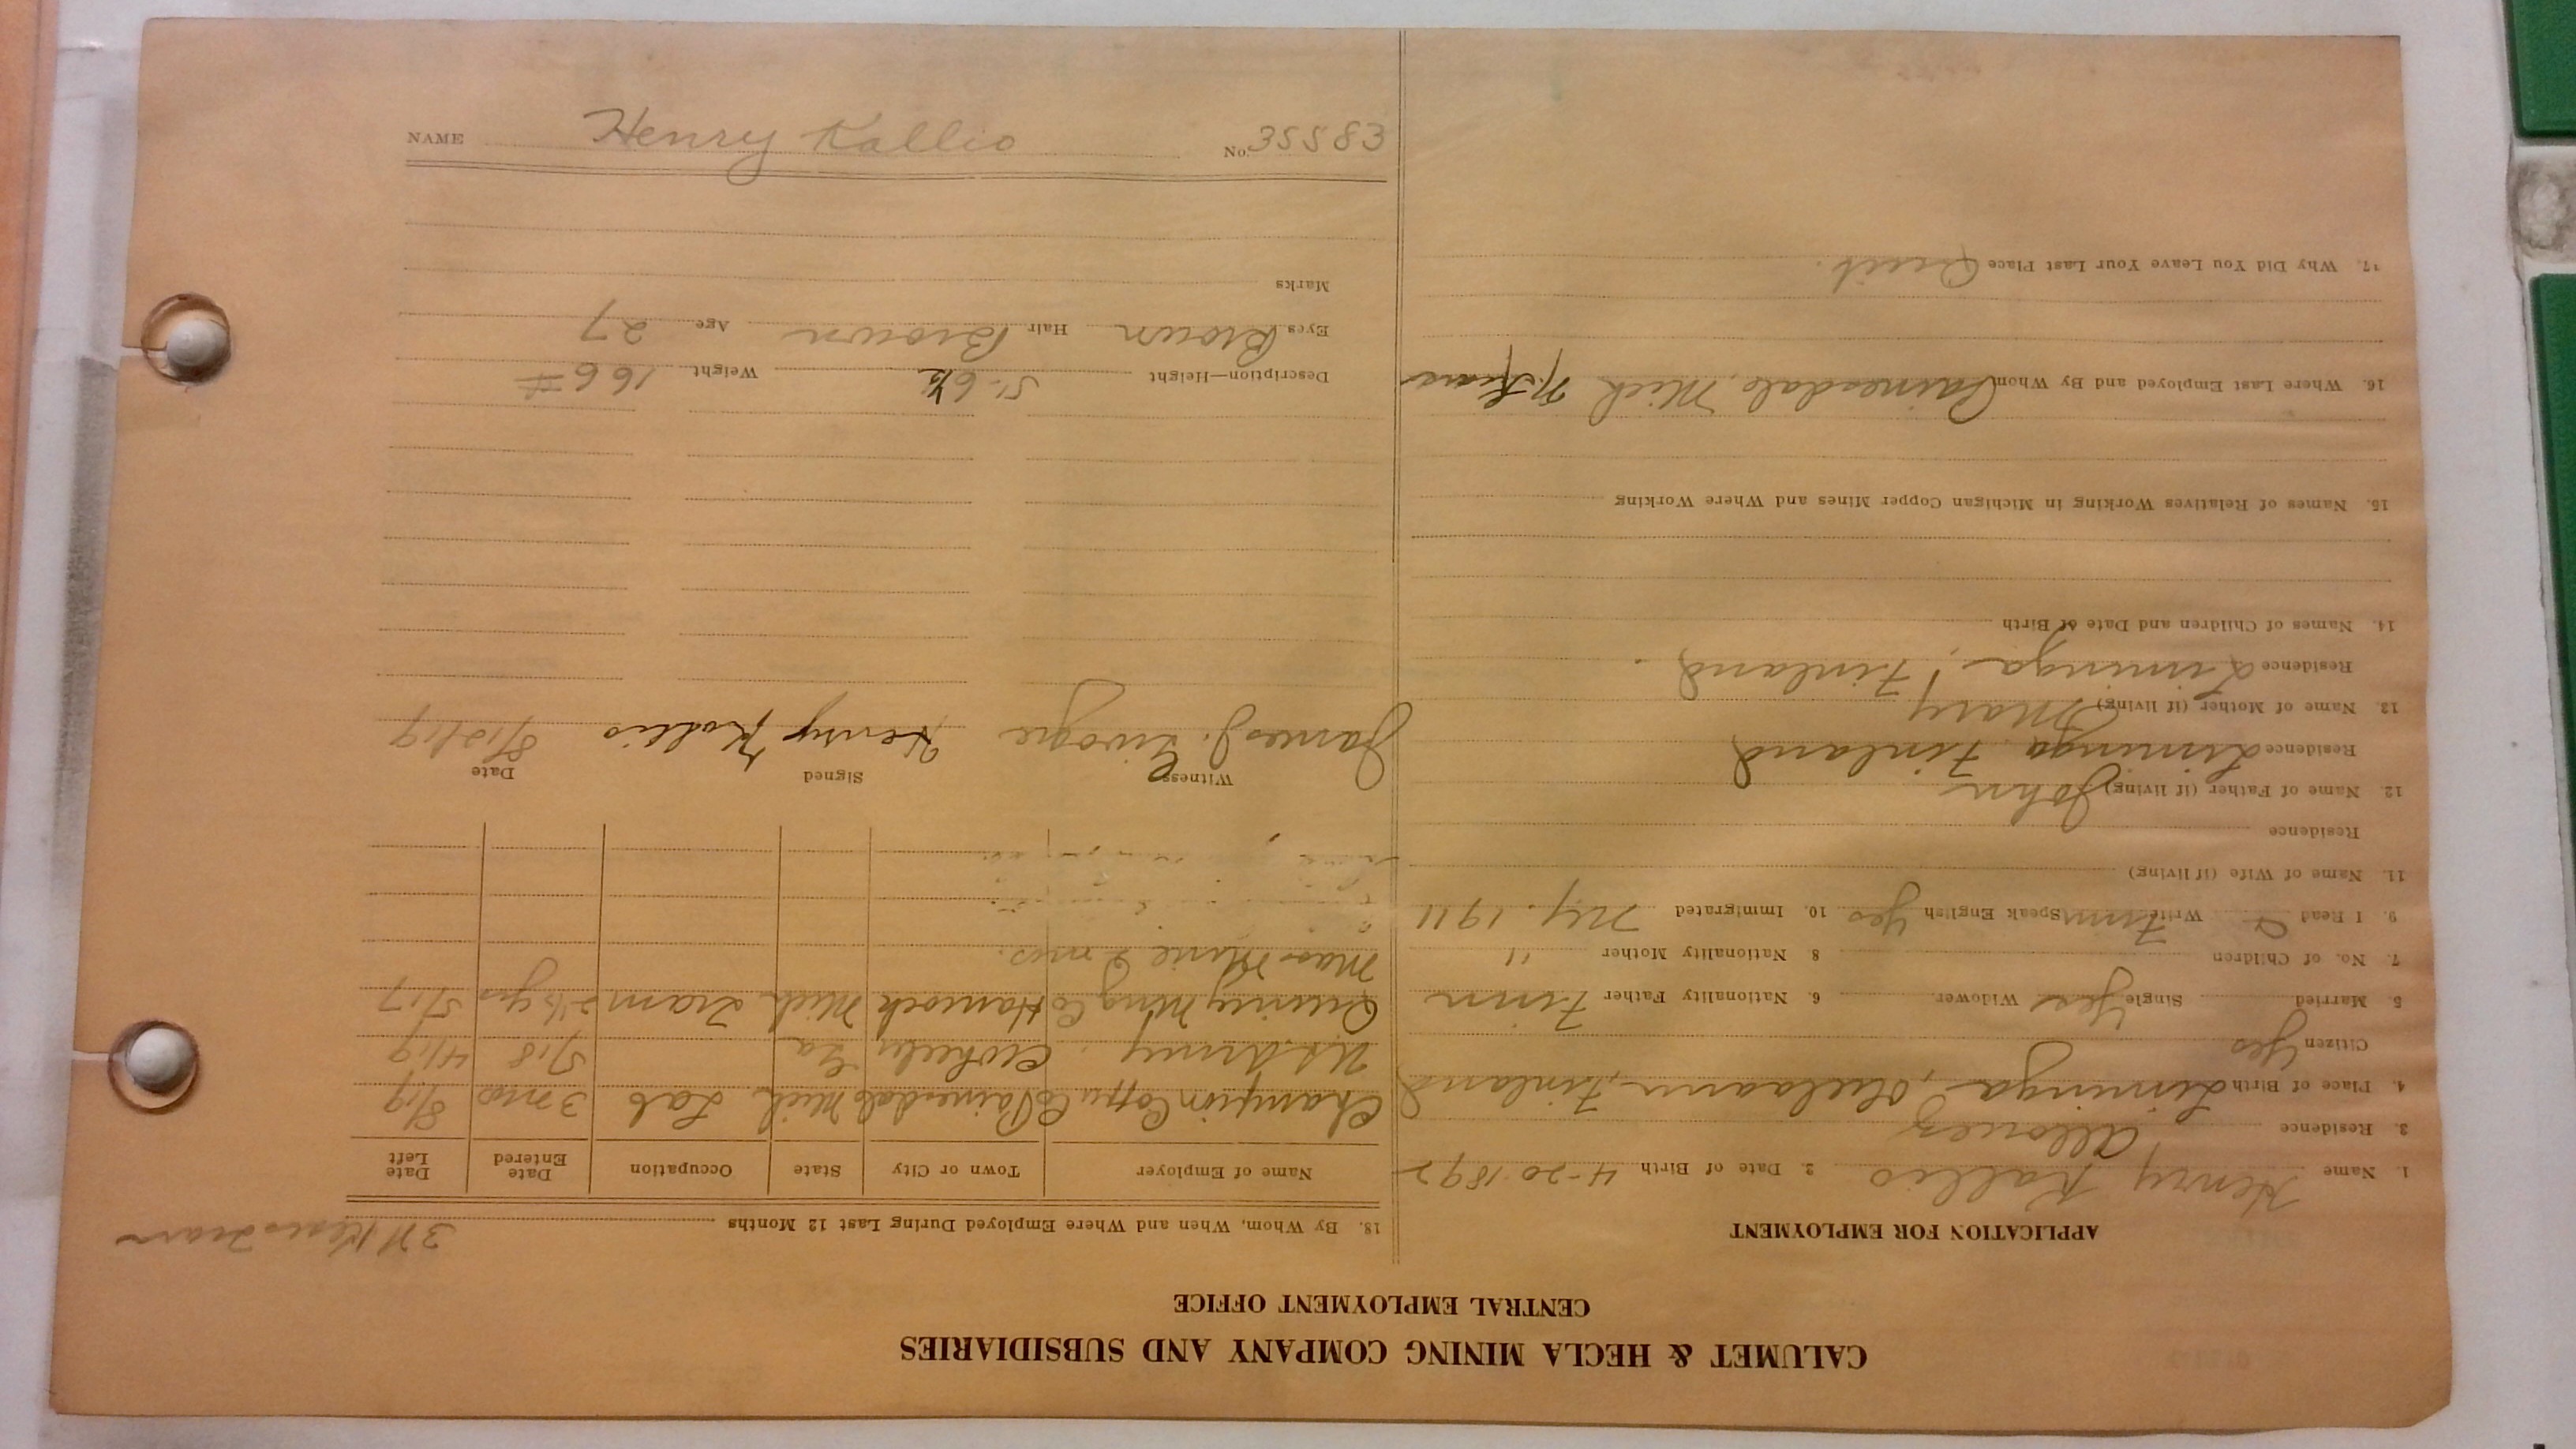 CALUMET & HECLA MINING COMPANY AND SUBSIDIARIES
CENTRAL EMPLOYMENT OFFICE
APPLICATION FOR EMPLOYMENT
1. Name Henry Kallio 2. Date of Birth 4-20-1892
3. Residence Allouez
4. Place of Birth Liminga, Oulu laani, Finland
Citizen Yes
5. Married Single Yes Widower 6. Nationality Father Finn
7. No. of Children 8 Nationality Mother "
9. I Read & Write Finn Speak English Yes 10. Immigrated N.Y. 1911
11. Name of Wife (if living)
Residence
12. Name of Father (if living) John
Residence Liminga, Finland
13. Name of Mother (if living) Mary
Residence Liminga, Finland.
14. Names of Children and Date of Birth
15. Names of Relatives Working in Michigan Copper Mines and Where Working
16. Where Last Employed and By Whom Painesdale, Mich
17. Why Did You Leave Your Last Place Quit.
18. By Whom, When and Where Employed During Last 12 Months
Name of Employer Town or City State Occupation Date Entered Date Left
Champion Copper Co Painesdale Mich Lab 3 mos 8/19
U.S. Army. Ga 5/18 4/19
Quincy Mng Co Hancock Mich Tram 2½ yrs 5/17
Mass Mine 2 mos.
Witness Signed Date
James J. Henry Kallio 8/12/19
Description—Height 5'-6½ Weight 166#
Eyes Brown Hair Brown Age 27
Marks
NAME Henry Kallio No. 35583